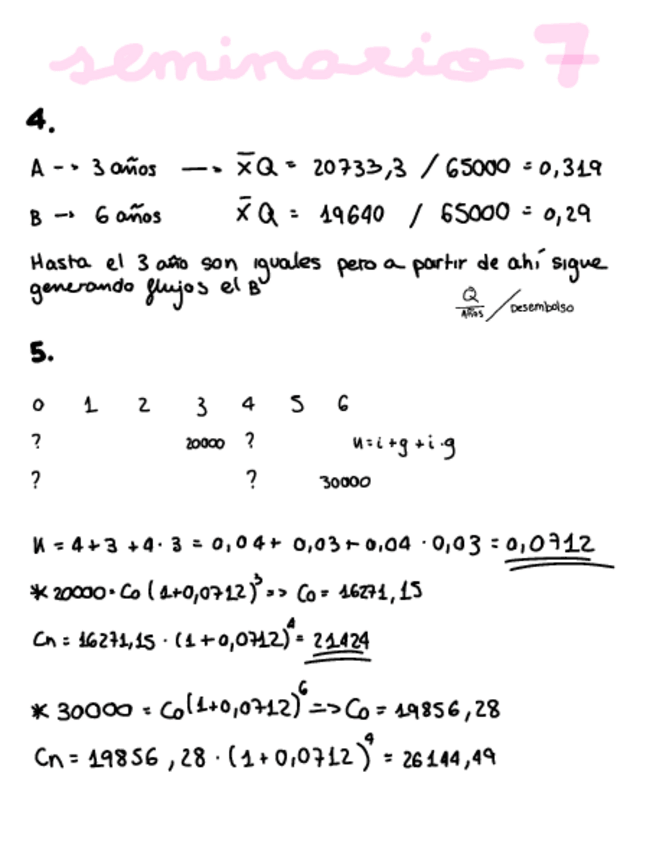 seminario 7
4.
A --> 3 años —-> x̄Q = 20733,3 / 65000 = 0,319
B --> 6 años x̄Q = 19640 / 65000 = 0,29
Hasta el 3 año son iguales pero a partir de ahí sigue
generando flujos el B
Q / Años / Desembolso
5.
0 1 2 3 4 5 6
? 20000 ? K=i+g+i·g
? ? 30000
K = 4+3+4·3 = 0,04+ 0,03+0,04 · 0,03 = 0,0712
* 20000 = Co (1+0,0712)³ => Co = 16271,15
Cn = 16271,15 · (1+0,0712)⁴ = 21424
* 30000 = Co(1+0,0712)⁶ => Co = 19856,28
Cn = 19856,28 · (1+0,0712)⁴ = 26144,49